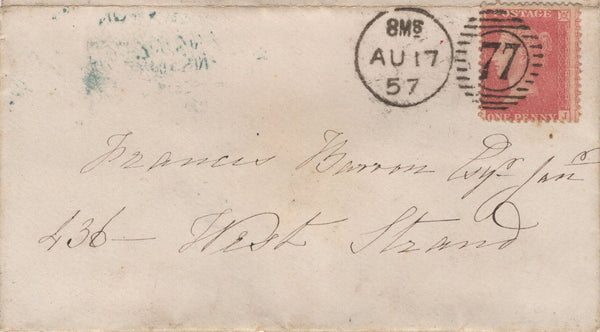 8Ms
AU 17
57
77
POSTAGE
ONE PENNY
Francis Barron Esqr. Junr
436 — West Strand